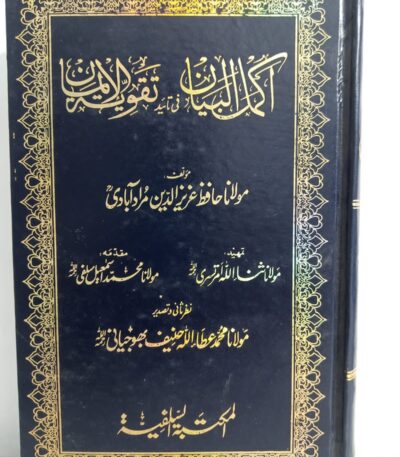 اکمل البیان فی تائید تقویۃ الایمان
مؤلف
مولانا حافظ عزیز الدین مراد آبادیؒ
تمہید: مقدمہ:
مولانا ثناء اللہ امرتسریؒ مولانا محمد اسمٰعیل سلفیؒ
نظر ثانی و تصدیر
مولانا محمد عطاء اللہ حنیف بھوجیانیؒ
المکتبۃ السلفیۃ